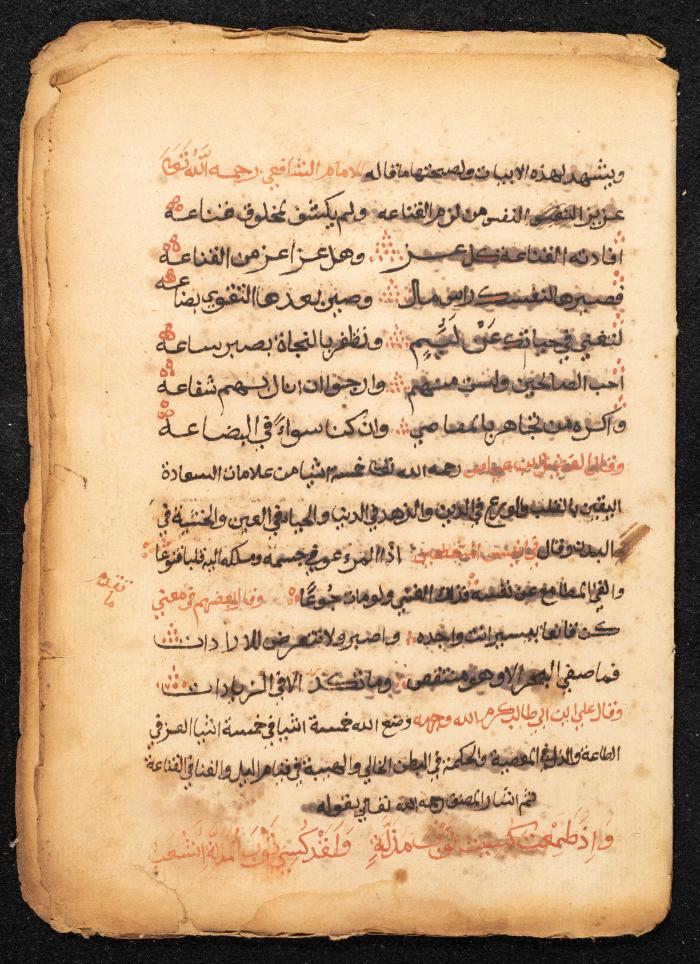 ويشهد لهذه الابيات ولصحتها ما قاله الامام الشافعي رحمه الله تعالى
عزيز النفس من لزم القناعه ولم يكشف لمخلوق قناعة
افادته القناعة كل عز وهل عز اعز من القناعة
فصيرها لنفسك راس مال وصير بعدها التقوى بضاعه
لتغني في حياتك عن لئيم وتظفر بالنجاة بصبر ساعة
احب الصالحين ولست منهم وارجوا ان انال بهم شفاعة
واكره من تجاهر بالمعاصي وان كنا سواءً في البضاعة
وقال الفضيل بن عياض رحمه الله تعالى خمسة اشيا من علامات السعادة
اليقين بالقلب والورع في الدين والزهد في الدنيا والحيا في العين والخشية في
البدن وقال اذا المرء عوفي في جسمه وملكه الله قلبا قنوعا
والقى المطامع عن نفسه فذاك الغني ولو مات جُوعًا وقال بعضهم في معني
كن قانعا بيسير انت واجده واصبر ولا تتعرض للارادات
فما صفي البحر الا وهو منتقص وما تكدر الا في الزيادات
وقال علي ابن ابي طالب كرم الله وجهه وضع الله خمسة اشيا في خمسة اشيا العز في
الطاعة والذل في المعصية والحكمة في البطن الخالي والهيبة في قيام الليل والغنا في القناعة
ثم اشار المصنف رحمه الله تعالى بقوله
وَاِذَا طَمِعْتَ كُسِيتَ ثَوْبَ مَذَلَّةٍ وَلَقَدْ كُسِيَ ثَوْبَ الْمَذَلَّةِ اَشْعَبُ